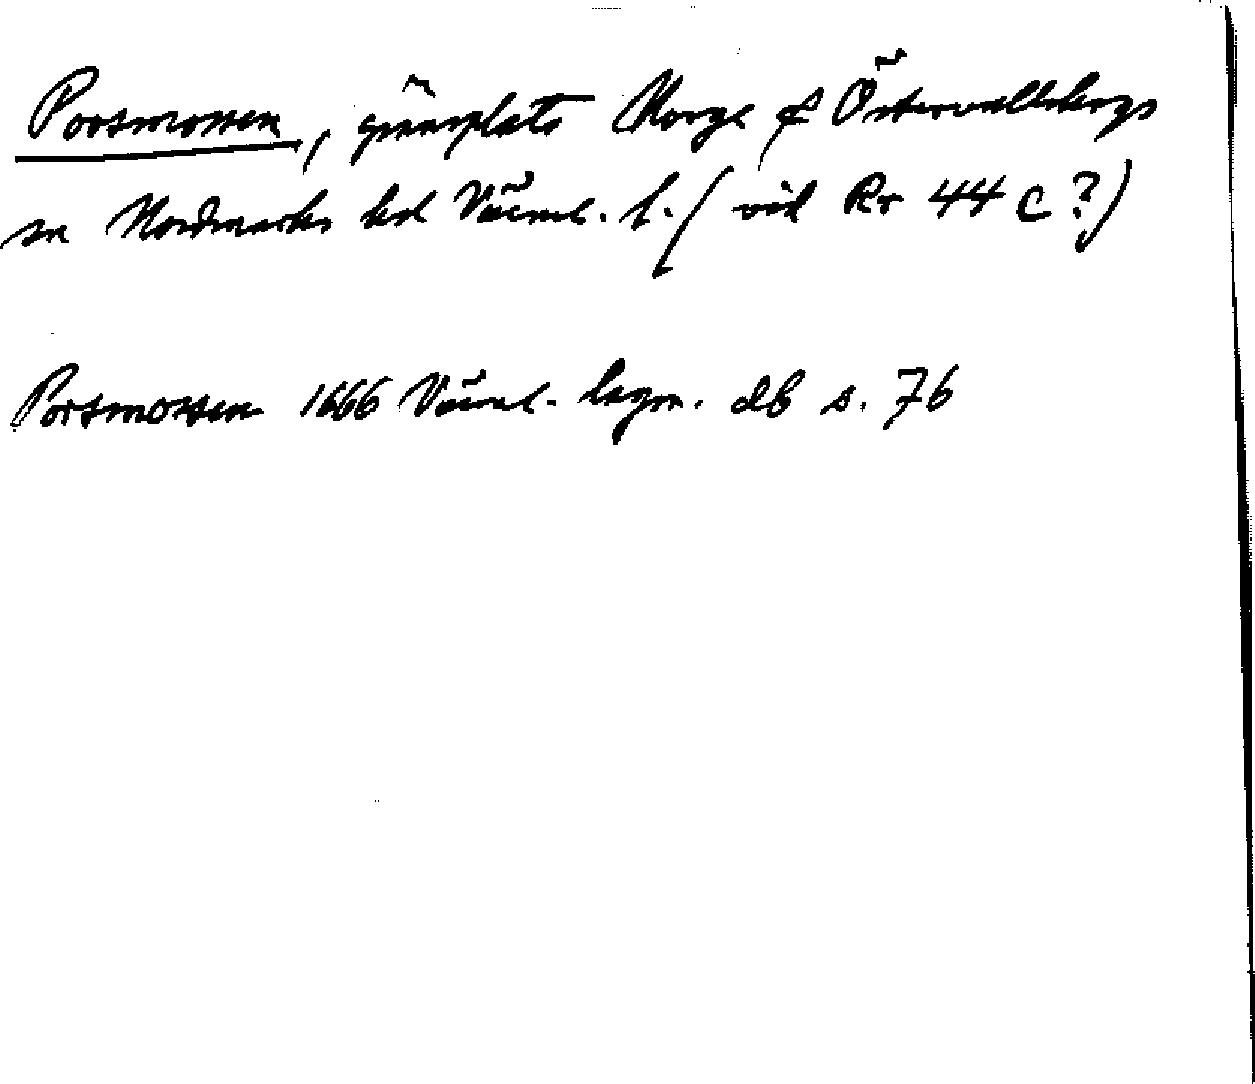 Porsmossen, gränsplats Norge & Östervallskogs
sn Nordmarks hd Värml. l. (vid Rr 44 C?)
Porsmossen 1666 Värml. lagm. db s. 76